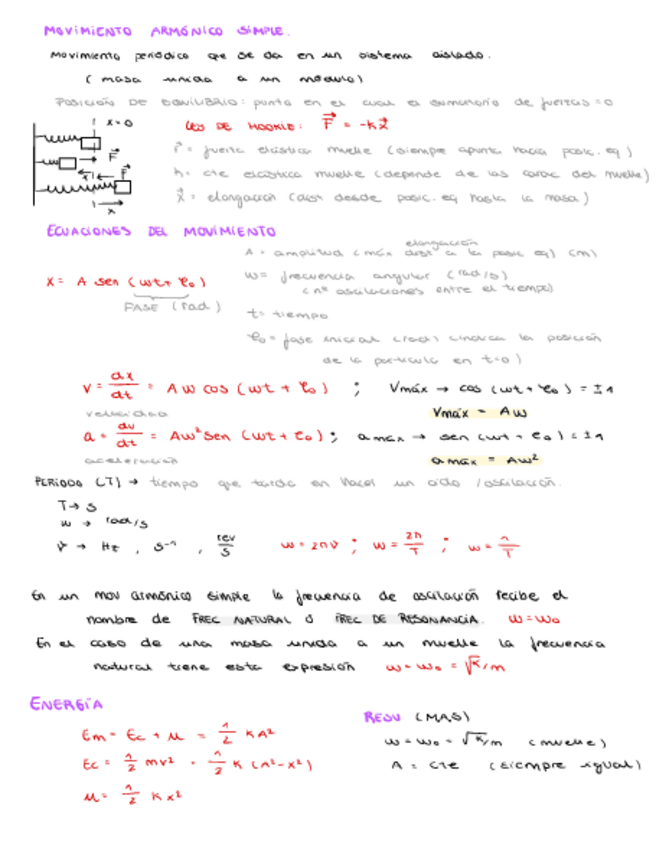 MOVIMIENTO ARMÓNICO SIMPLE.
Movimiento periódico que se da en un sistema aislado.
( masa unida a un módulo)
POSICIÓN DE EQUILIBRIO: punto en el cual el sumatorio de fuerzas = 0
x=0
LEY DE HOOKE: F⃗ = -Kx⃗
F⃗
F⃗ = fuerza elástica muelle (siempre apunta hacia posic. eq)
x⃗ F⃗
k = cte elástica muelle (depende de las carac del muelle)
x⃗
x⃗ = elongación (dist desde posic. eq hasta la masa)
ECUACIONES DEL MOVIMIENTO
elongación
A = amplitud (máx dist a la posic eq) (m)
x = A sen (ωt + φ₀)
ω = frecuencia angular (rad/s)
(nº oscilaciones entre el tiempo)
FASE (rad)
t = tiempo
φ₀ = fase inicial (rad) (indica la posición
de la partícula en t=0)
v = dx/dt = Aω cos (ωt + φ₀) ; Vmáx → cos (ωt + φ₀) = ±1
velocidad
Vmáx = Aω
a = dv/dt = Aω² sen (ωt + φ₀) ; amáx → sen (ωt + φ₀) = ±1
aceleración
amáx = Aω²
PERIODO (T) → tiempo que tarda en hacer un ciclo /oscilación.
T → s
ω → rad/s
ν → Hz , s⁻¹ , rev/s ω = 2πν ; ω = 2π/T ; ω = 1/T
En un mov armónico simple la frecuencia de oscilación recibe el
nombre de FREC NATURAL O FREC DE RESONANCIA. ω = ω₀
En el caso de una masa unida a un muelle la frecuencia
natural tiene esta expresión ω = ω₀ = √K/m
ENERGÍA
RESU (MAS)
Em = Ec + U = 1/2 KA²
ω = ω₀ = √K/m (muelle)
Ec = 1/2 mv² = 1/2 K (A²-x²)
A = cte (siempre igual)
U = 1/2 Kx²